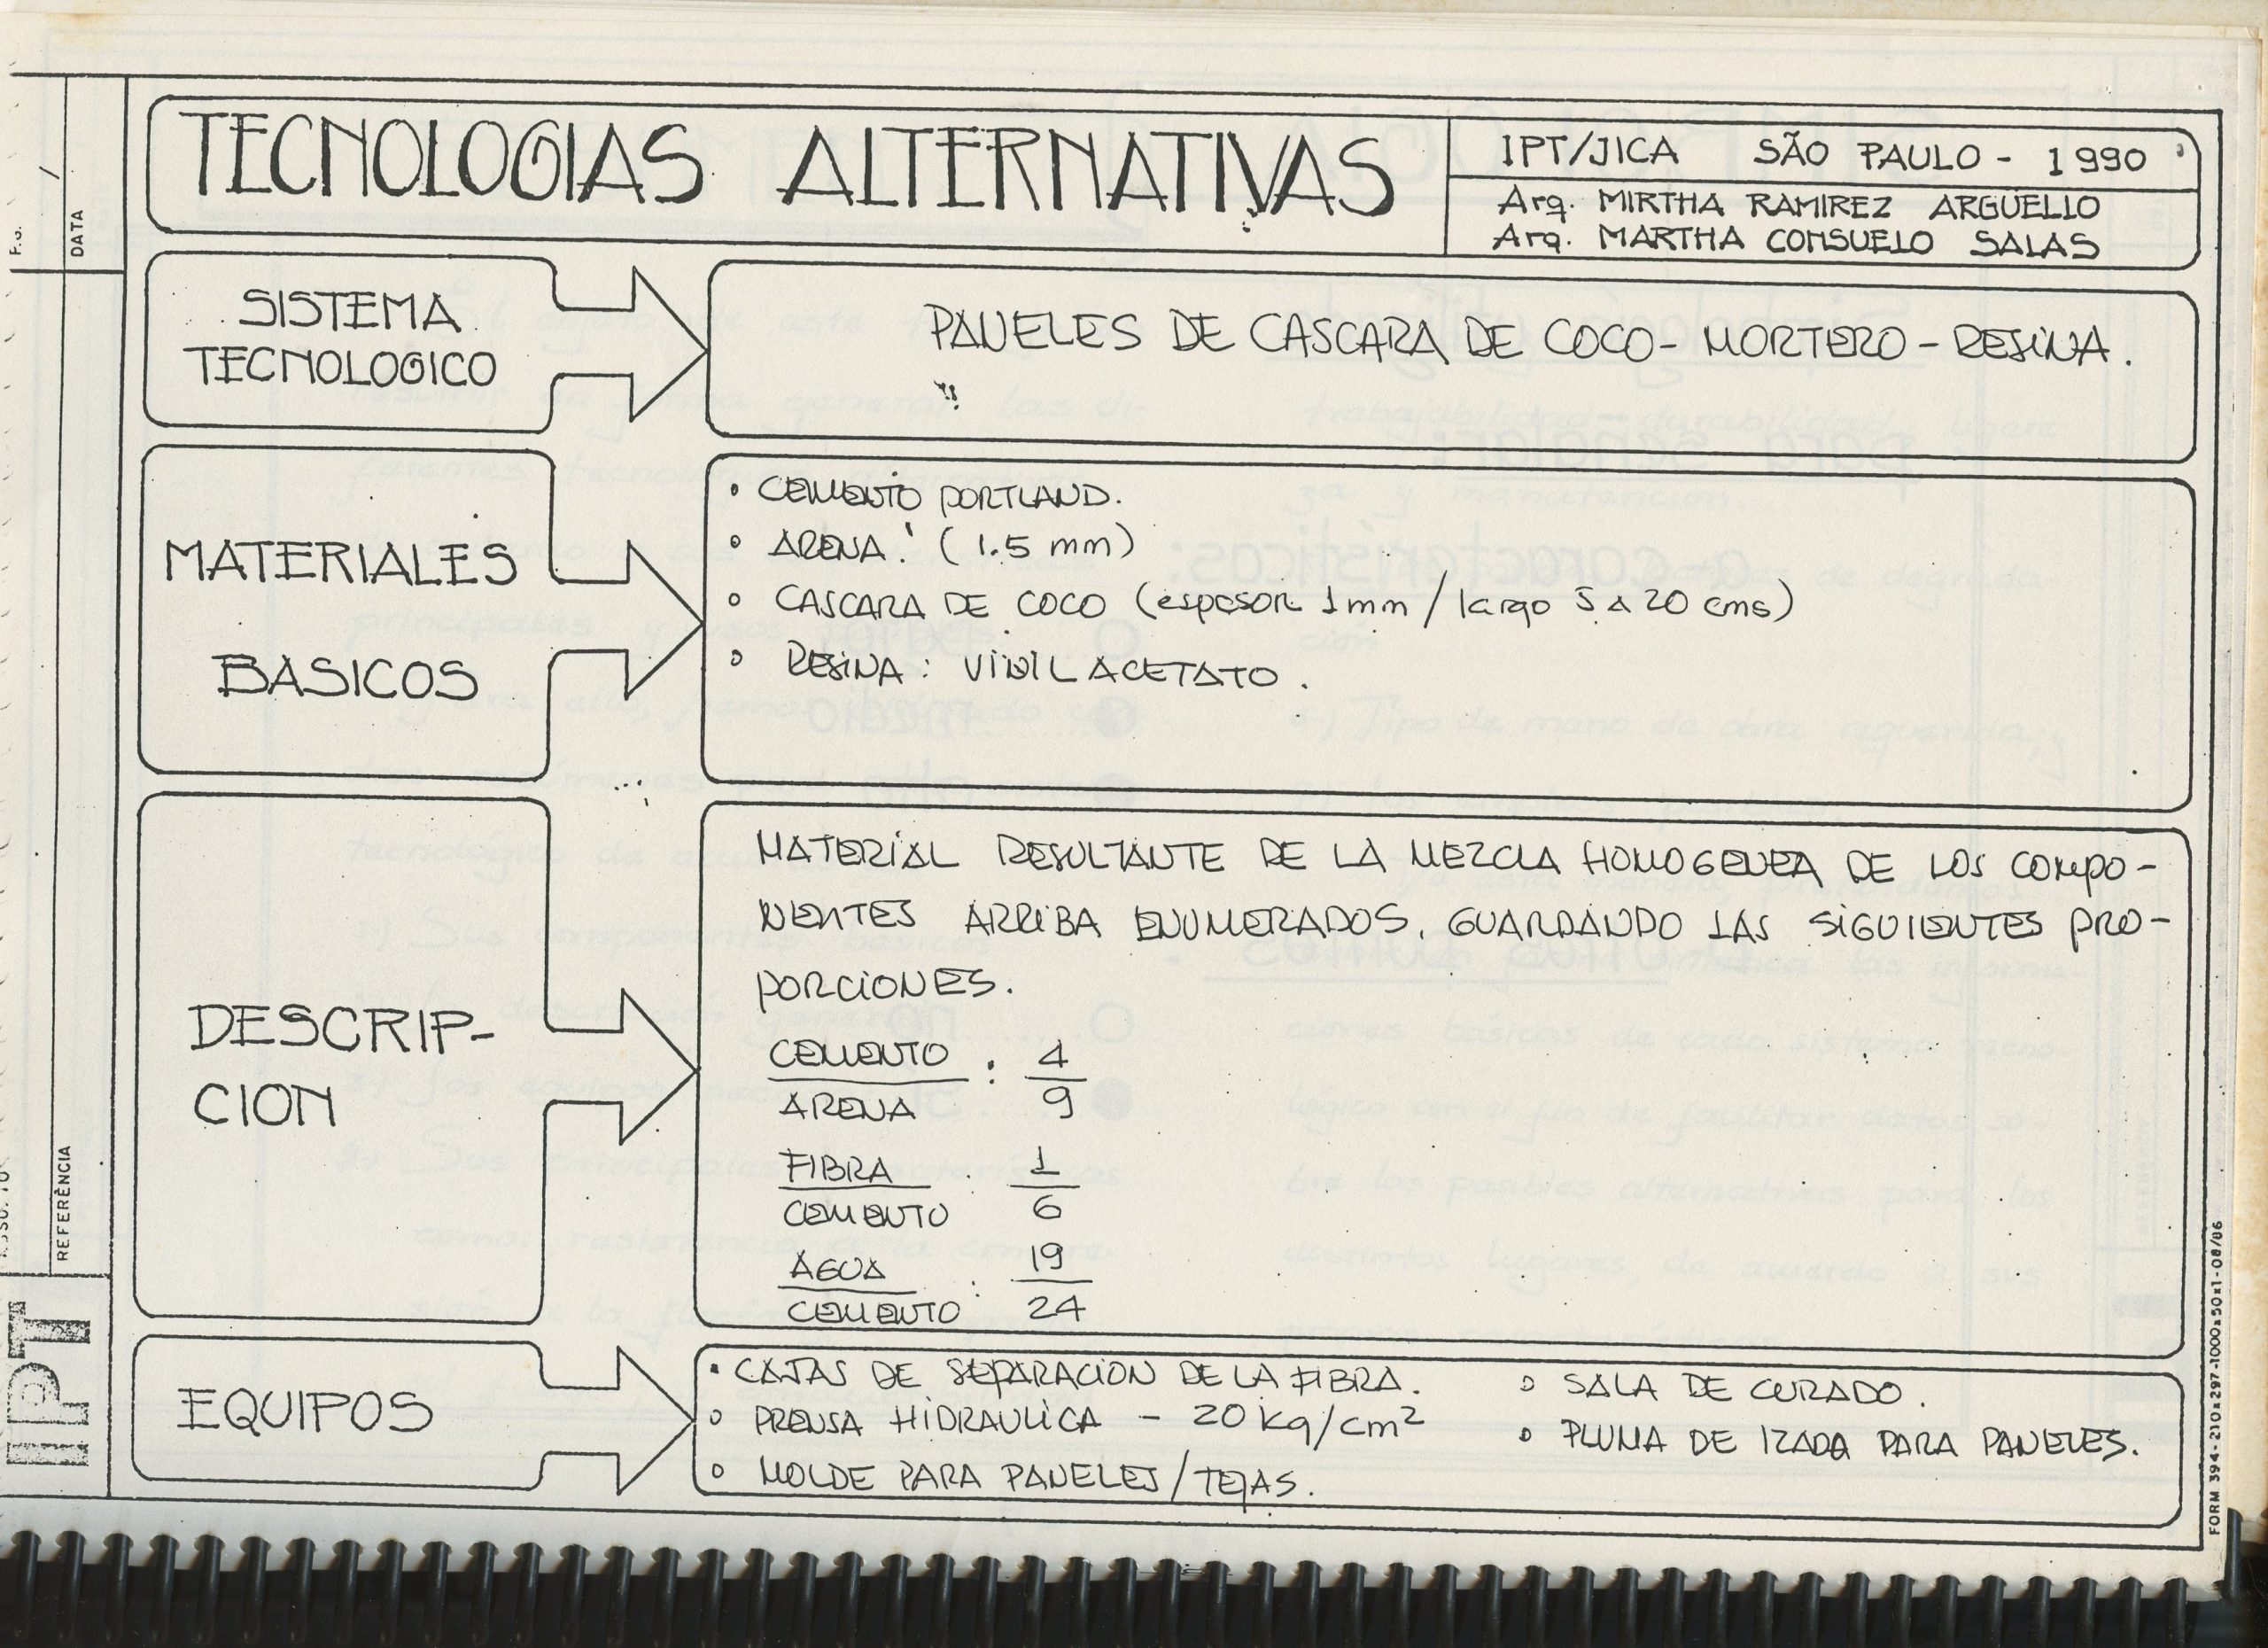 TECNOLOGIAS ALTERNATIVAS
IPT/JICA SÃO PAULO - 1990
Arq. MIRTHA RAMIREZ ARGÜELLO
Arq. MARTHA CONSUELO SALAS
SISTEMA
TECNOLOGICO
PANELES DE CASCARA DE COCO - MORTERO - RESINA.
MATERIALES
BASICOS
• CEMENTO PORTLAND.
• ARENA: (1.5 mm)
• CASCARA DE COCO (espesor 1mm / largo 5 a 20 cms)
• RESINA: VINIL ACETATO.
DESCRIP-
CION
MATERIAL RESULTANTE DE LA MEZCLA HOMOGENEA DE LOS COMPO-
NENTES ARRIBA ENUMERADOS, GUARDANDO LAS SIGUIENTES PRO-
PORCIONES.
CEMENTO : 4
ARENA 9
FIBRA : 1
CEMENTO 6
AGUA : 19
CEMENTO 24
EQUIPOS
• CAJAS DE SEPARACION DE LA FIBRA.
• PRENSA HIDRAULICA - 20 kg/cm²
• MOLDE PARA PANELES/TEJAS.
• SALA DE CURADO.
• PLUMA DE IZADA PARA PANELES.
DATA
REFERÊNCIA
IPT
FORM 394-210x297-1000x50x1-08/86